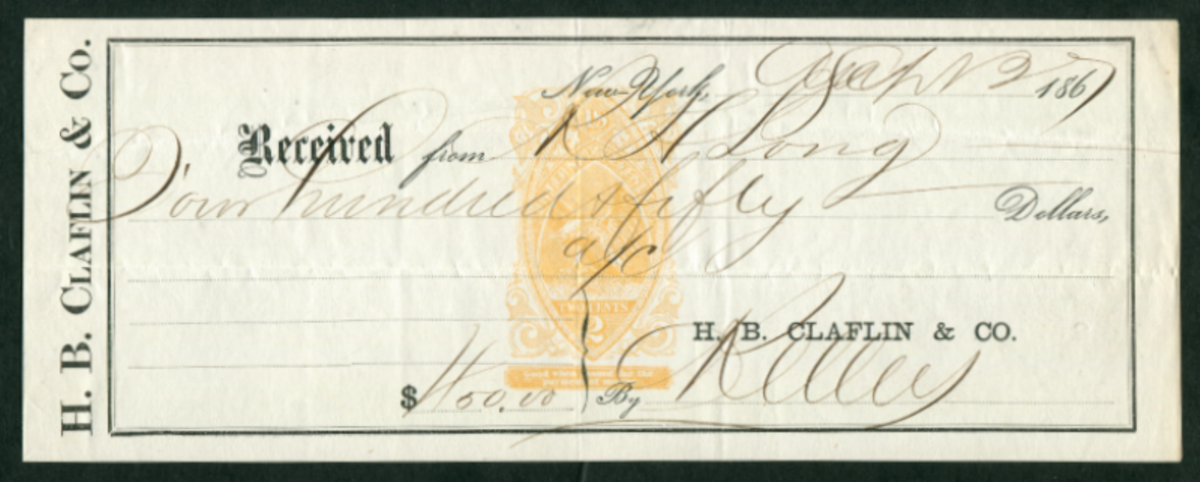 H. B. CLAFLIN & CO.
New-York, Sept 2 1867
Received from R H Long
Four hundred & fifty Dollars,
a/c
TWO CENTS
2
H. B. CLAFLIN & CO.
$450.00 By Kelley